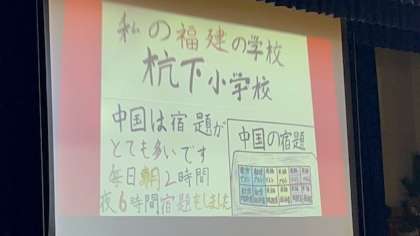 私の福建の学校
杭下小学校
中国は宿題が
とても多いです
毎日朝2時間
夜6時間宿題をしました
中国の宿題